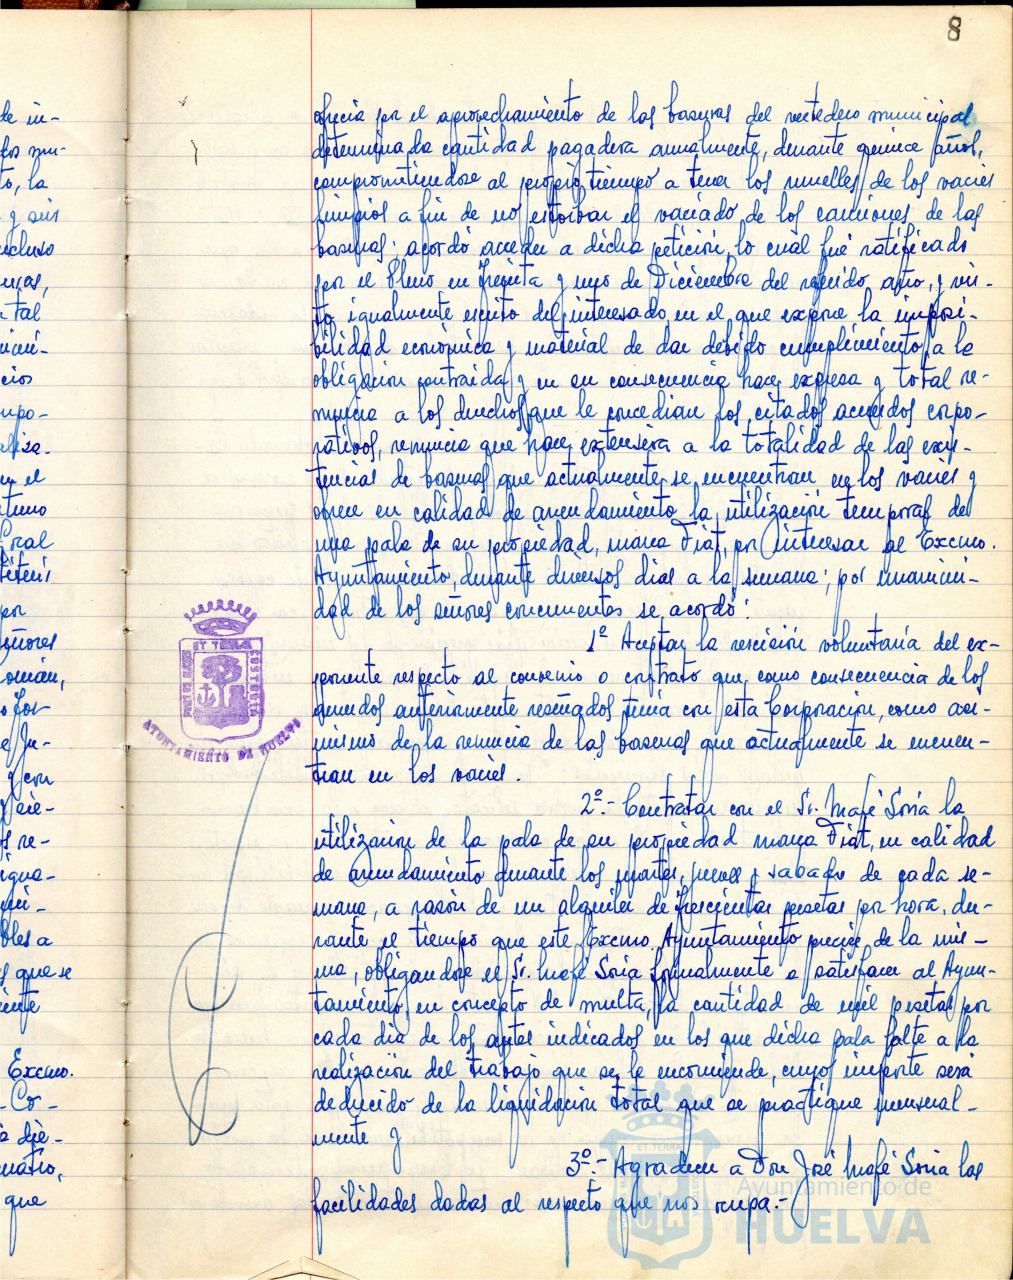 8
ofrecía por el aprovechamiento de las basuras del vertedero municipal
determinada cantidad pagadera anualmente, durante quince años,
comprometiéndose al propio tiempo a tener los muelles de los vacies
limpios a fin de no estorbar el vaciado de los camiones de las
basuras; acordó acceder a dicha petición, lo cual fué ratificado
por el Pleno en treinta y uno de Diciembre del referido año, y vis-
to igualmente escrito del interesado, en el que expone la imposi-
bilidad económica y material de dar debido cumplimiento a la
obligación contraida y en su consecuencia hace expresa y total re-
nuncia a los derechos que le concedian los citados acuerdos corpo-
rativos, renuncia que hace extensiva a la totalidad de las exis-
tencias de basuras que actualmente se encuentran en los vacies y
ofrece en calidad de arrendamiento la utilización temporal de
una pala de su propiedad, marca Fiat, por interesar al Excmo.
Ayuntamiento, durante diversos dias a la semana; por unanimi-
dad de los señores concurrentes se acordó:
1º Aceptar la rescisión voluntaria del ex-
ponente respecto al convenio o contrato que, como consecuencia de los
acuerdos anteriormente reseñados tenía con esta Corporación, como asi-
mismo de la renuncia de las basuras que actualmente se encuen-
tran en los vacies.
2º.- Contratar con el Sr. Mafé Soria la
utilización de la pala de su propiedad marca Fiat, en calidad
de arrendamiento durante los martes, jueves y sabado de cada se-
mana, a razón de un alquiler de trescientas pesetas por hora, du-
rante el tiempo que este Excmo. Ayuntamiento precise de la mis-
ma, obligandose el Sr. Mafé Soria formalmente a satisfacer al Ayun-
tamiento, en concepto de multa, la cantidad de mil pesetas por
cada día de los antes indicados en los que dicha pala falte a la
realización del trabajo que se le encomiende, cuyo importe será
deducido de la liquidación total que se practique mensual-
mente y
3º.- Agradecer a Don José Mafé Soria las
facilidades dadas al respecto que nos ocupa.-
AYUNTAMIENTO DE HUELVA
Ayuntamiento de
HUELVA